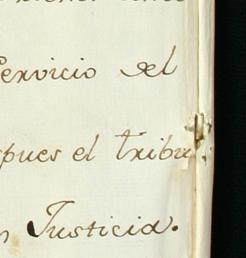 Servicio del
spues el tribu
n Justicia.